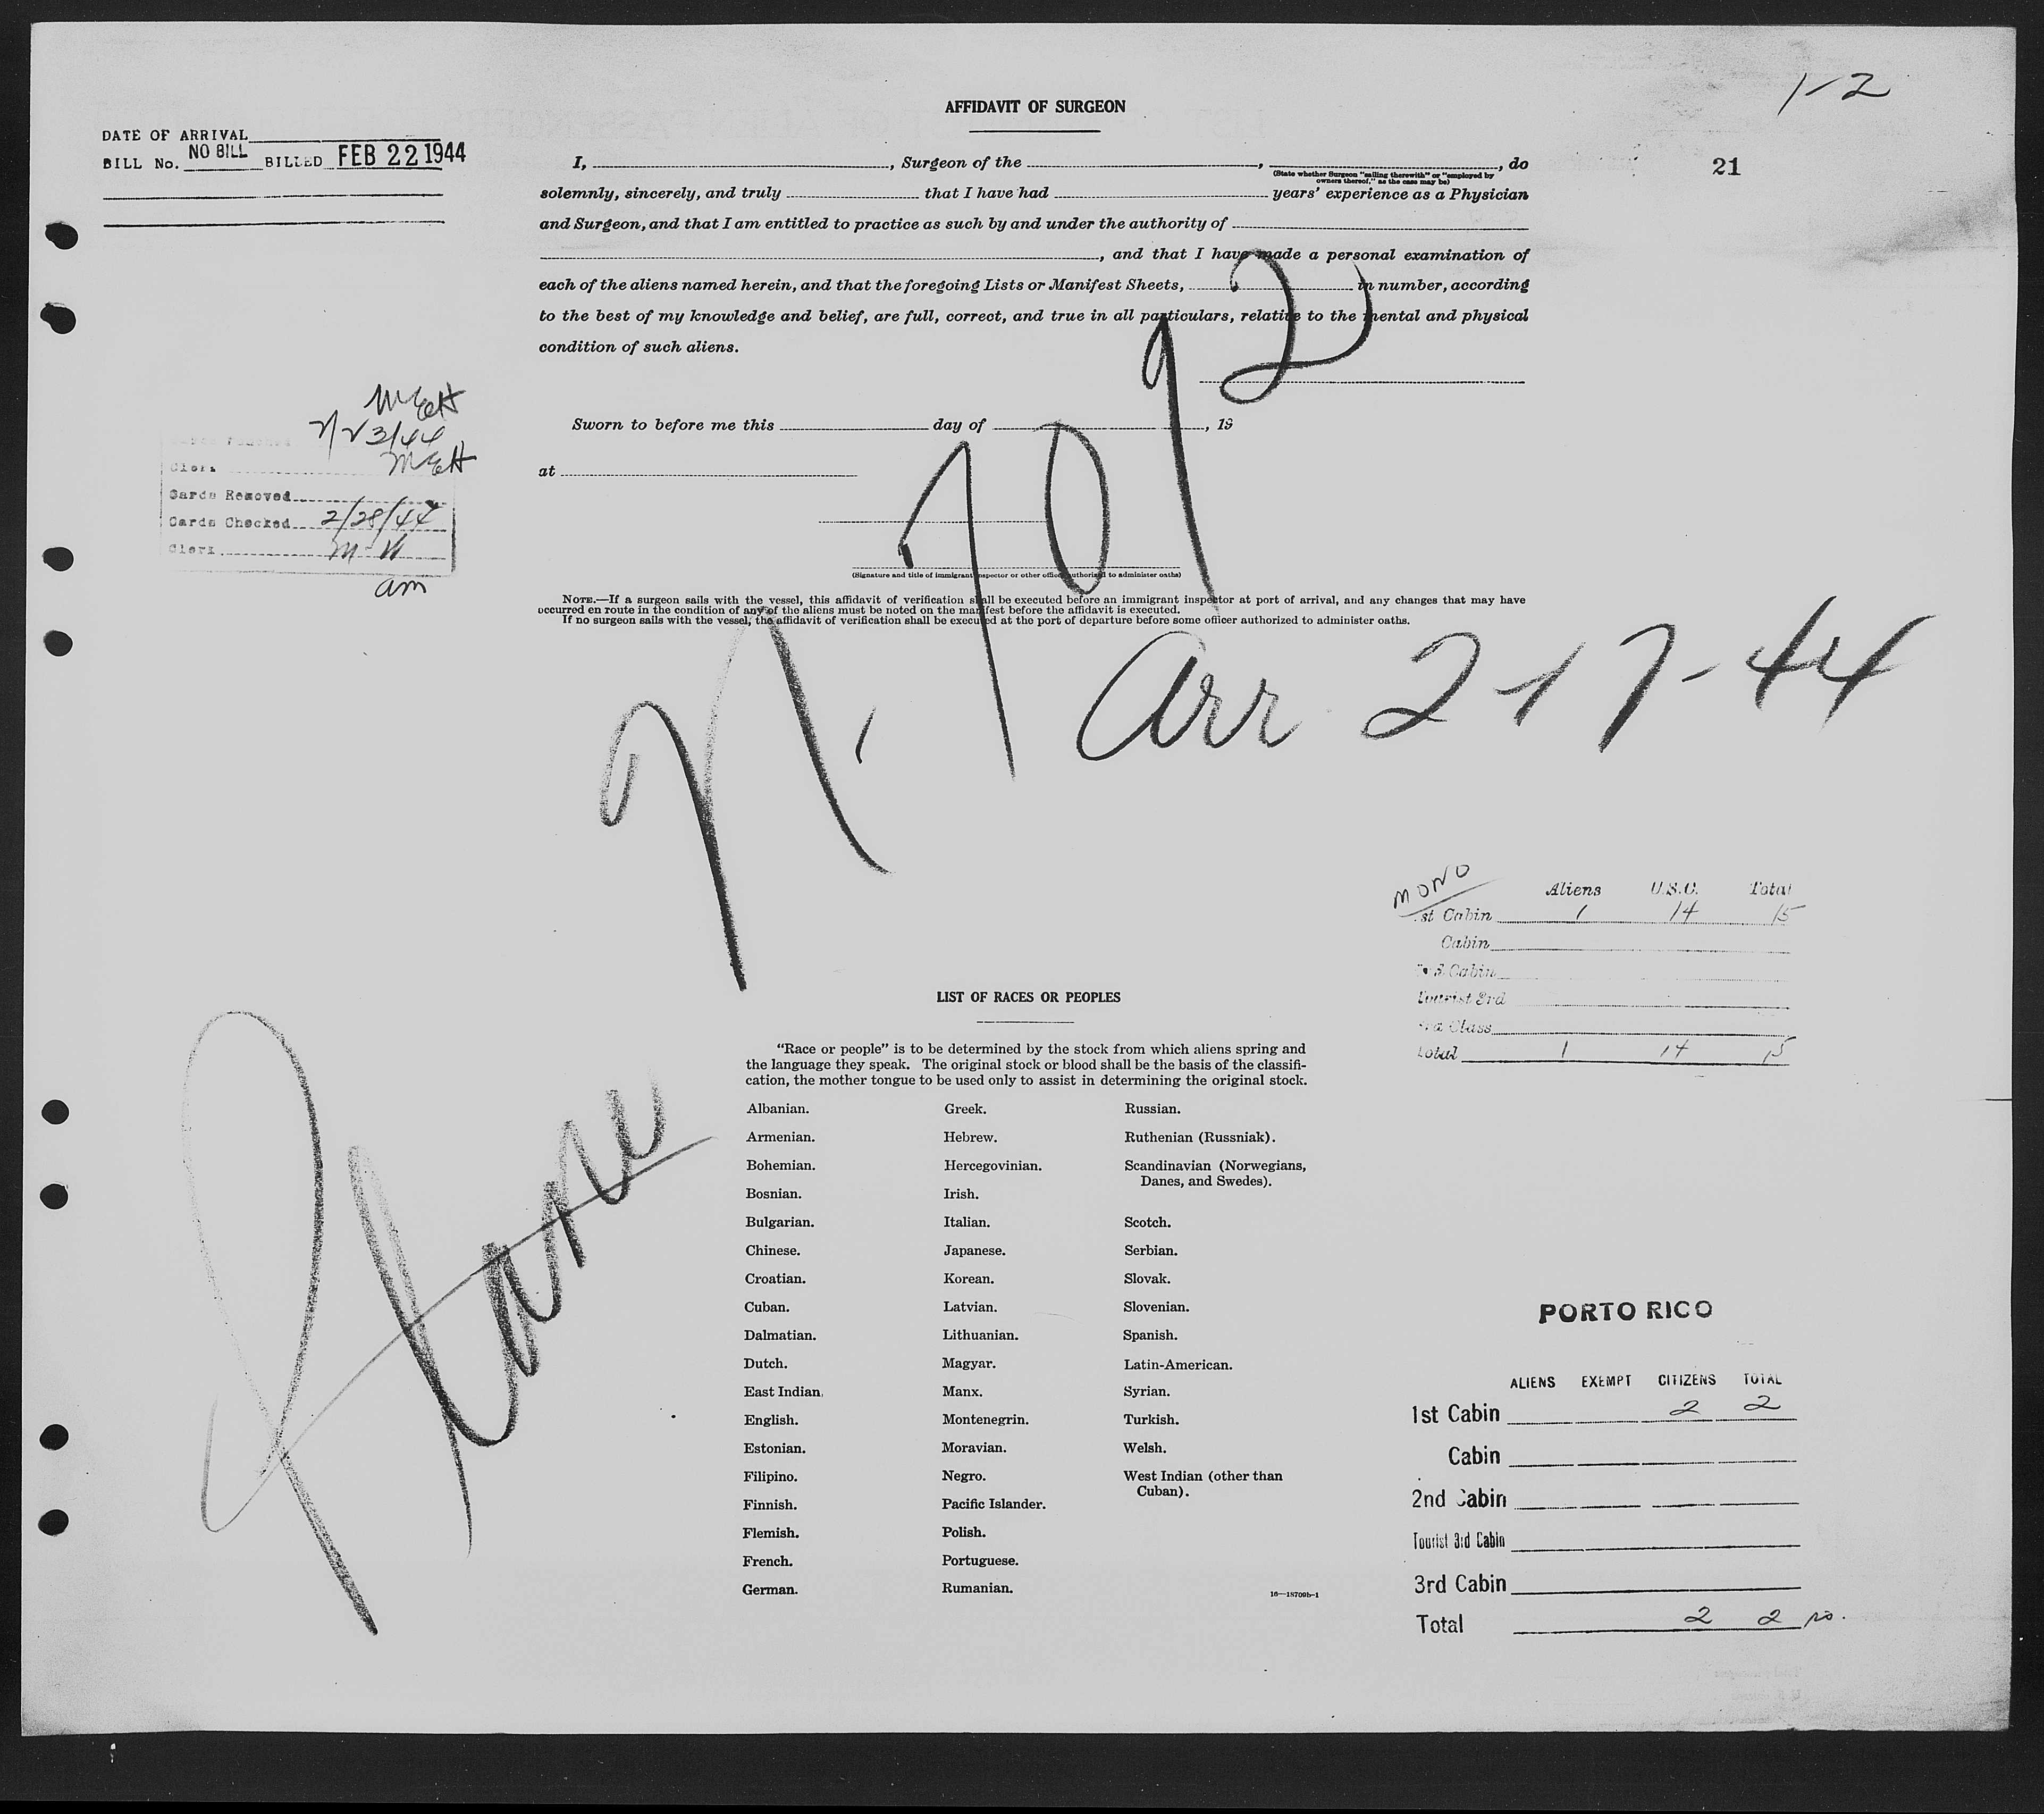 1-2
AFFIDAVIT OF SURGEON
DATE OF ARRIVAL
BILL No. NO BILL BILLED FEB 22 1944
21
I, , Surgeon of the , , do
(State whether Surgeon "sailing therewith" or "employed by
owners thereof," as the case may be)
solemnly, sincerely, and truly that I have had years' experience as a Physician
and Surgeon, and that I am entitled to practice as such by and under the authority of
, and that I have made a personal examination of
each of the aliens named herein, and that the foregoing Lists or Manifest Sheets, in number, according
to the best of my knowledge and belief, are full, correct, and true in all particulars, relative to the mental and physical
condition of such aliens.
Sworn to before me this day of , 19
at
(Signature and title of immigrant inspector or other officer authorized to administer oaths)
NOTE.—If a surgeon sails with the vessel, this affidavit of verification shall be executed before an immigrant inspector at port of arrival, and any changes that may have
occurred en route in the condition of any of the aliens must be noted on the manifest before the affidavit is executed.
If no surgeon sails with the vessel, the affidavit of verification shall be executed at the port of departure before some officer authorized to administer oaths.
MEH
MEH
Clerk
Cards Removed
Cards Checked 2/28/44
Clerk
am
Arr 2-17-44
Plane
MONO
Aliens U.S.C. Total
st Cabin 1 14 15
Cabin
Cabin
Tourist 3rd
Class
Total 1 14 15
LIST OF RACES OR PEOPLES
"Race or people" is to be determined by the stock from which aliens spring and
the language they speak. The original stock or blood shall be the basis of the classifi-
cation, the mother tongue to be used only to assist in determining the original stock.
Albanian.
Armenian.
Bohemian.
Bosnian.
Bulgarian.
Chinese.
Croatian.
Cuban.
Dalmatian.
Dutch.
East Indian.
English.
Estonian.
Filipino.
Finnish.
Flemish.
French.
German.
Greek.
Hebrew.
Hercegovinian.
Irish.
Italian.
Japanese.
Korean.
Latvian.
Lithuanian.
Magyar.
Manx.
Montenegrin.
Moravian.
Negro.
Pacific Islander.
Polish.
Portuguese.
Rumanian.
Russian.
Ruthenian (Russniak).
Scandinavian (Norwegians,
Danes, and Swedes).
Scotch.
Serbian.
Slovak.
Slovenian.
Spanish.
Latin-American.
Syrian.
Turkish.
Welsh.
West Indian (other than
Cuban).
16—18709b-1
PORTO RICO
ALIENS EXEMPT CITIZENS TOTAL
1st Cabin 2 2
Cabin
2nd Cabin
Tourist 3rd Cabin
3rd Cabin
Total 2 2